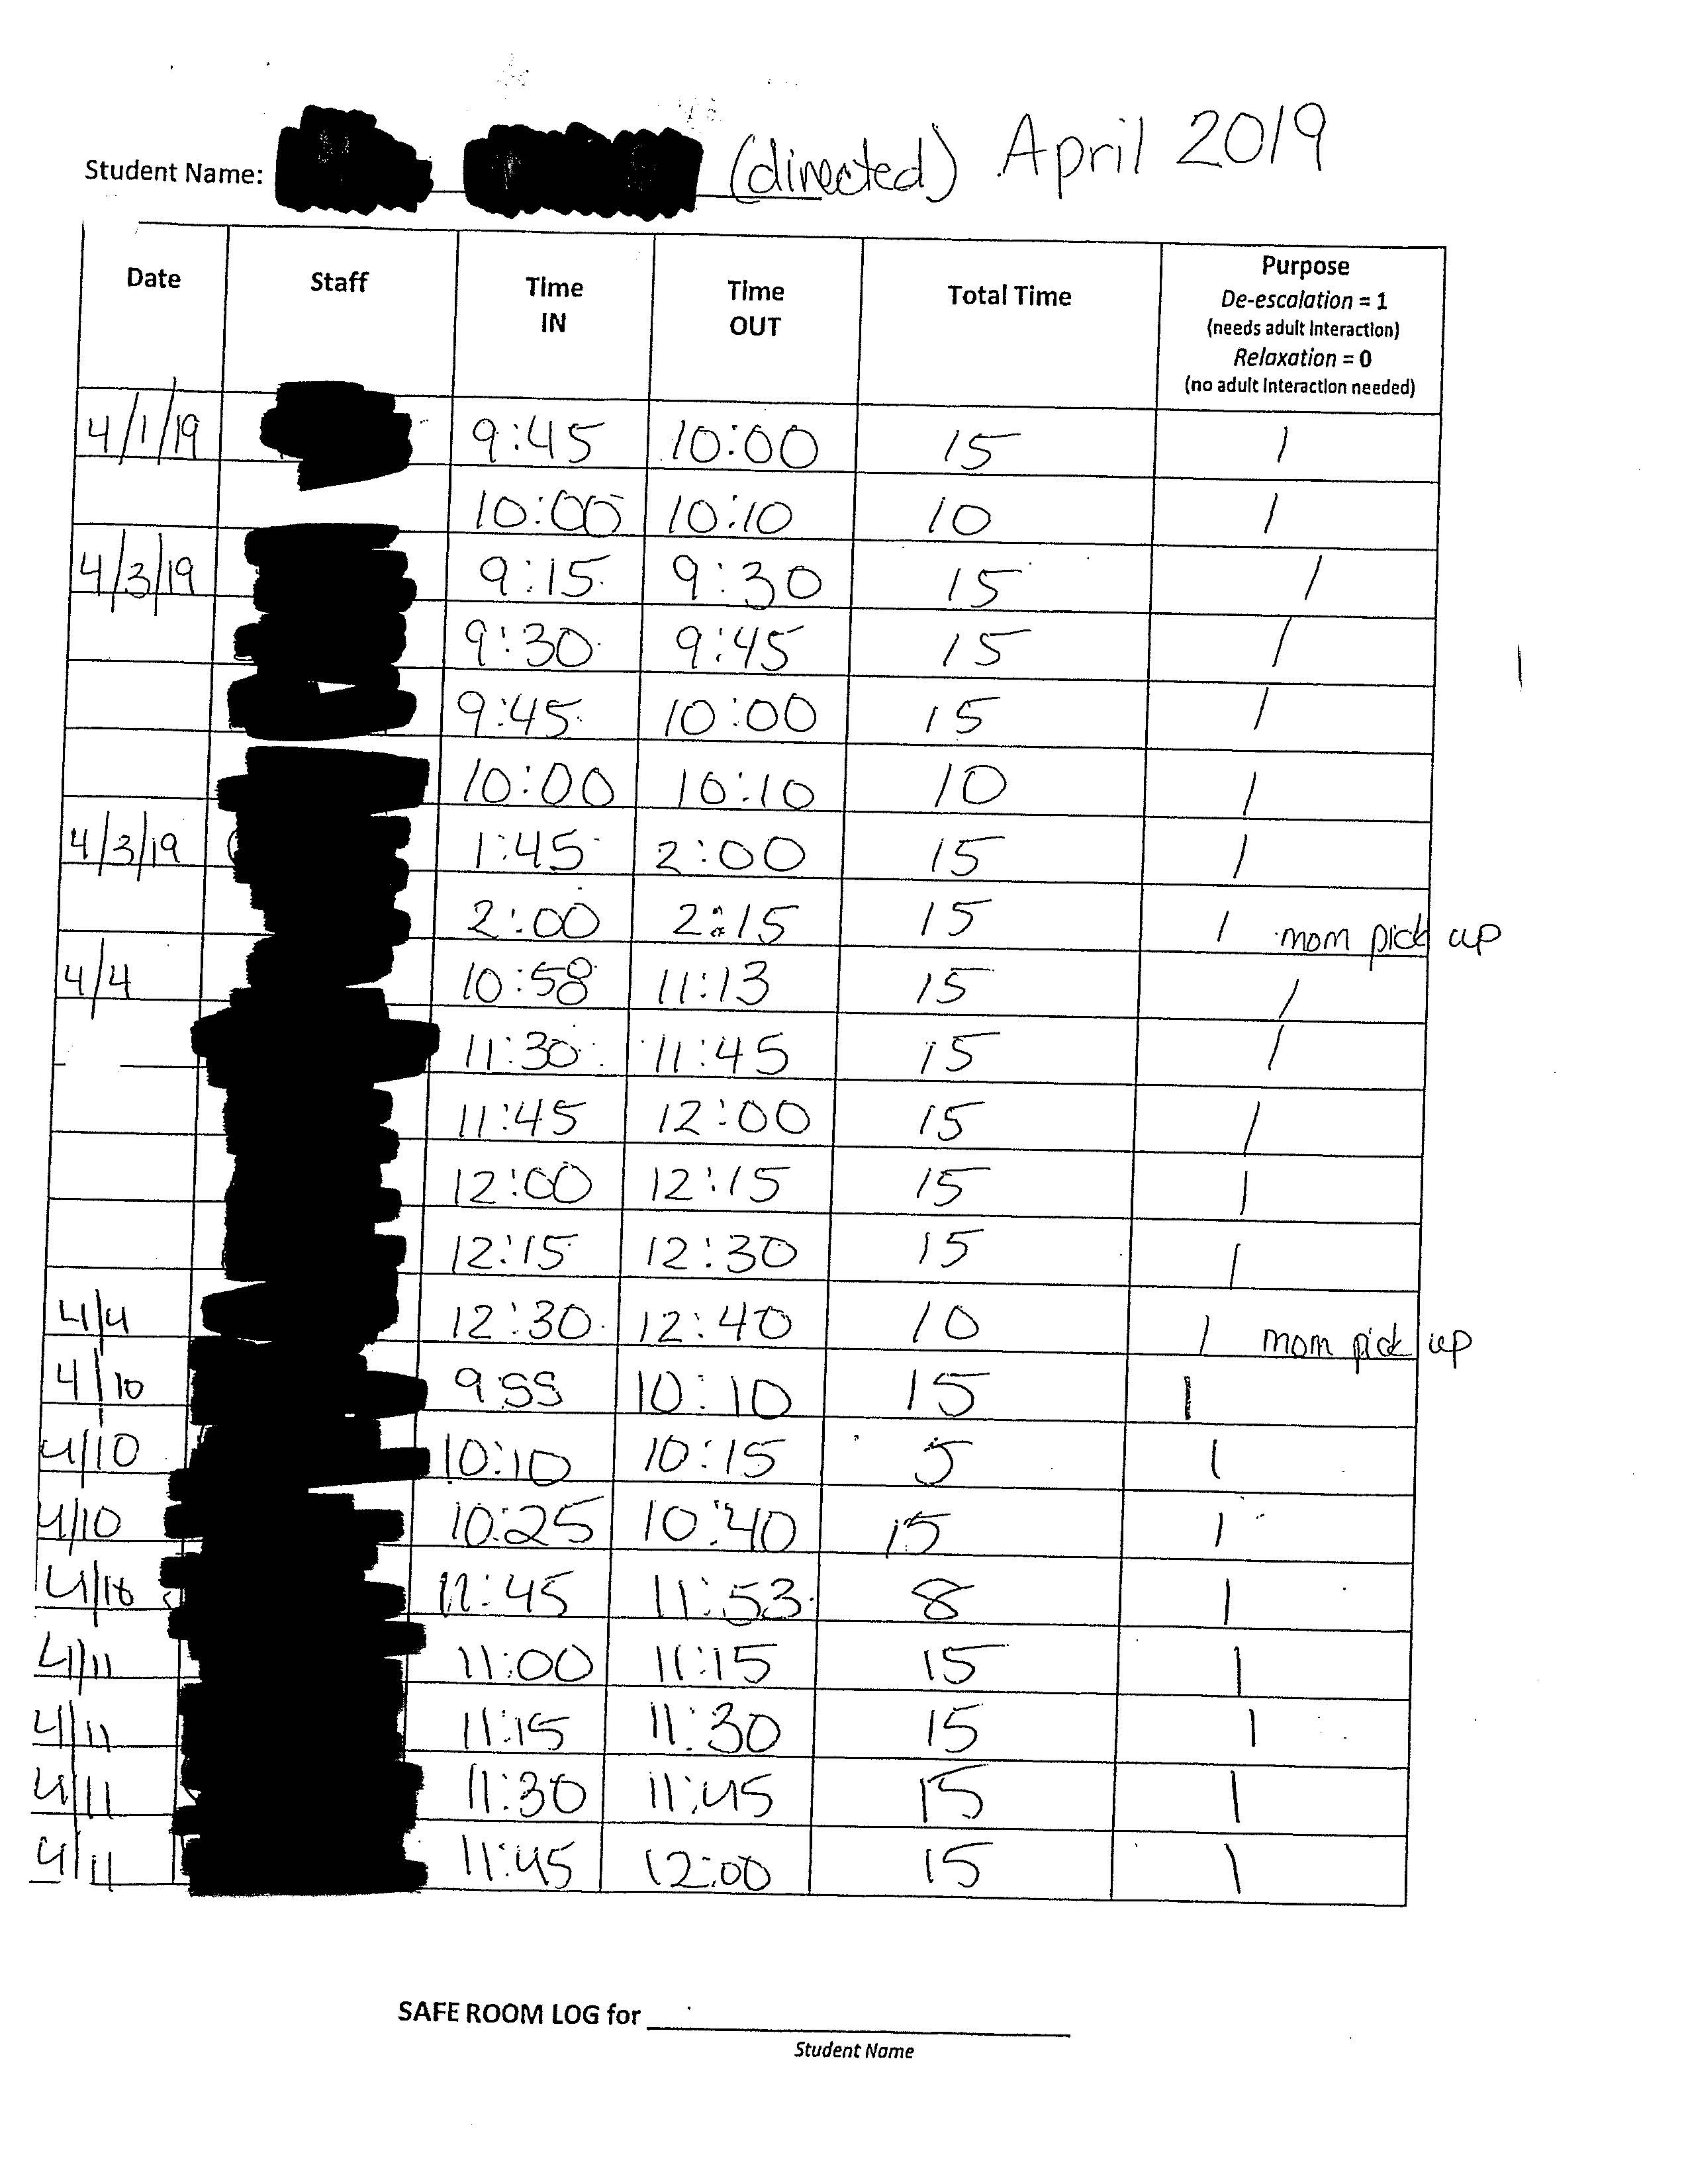 Student Name: (directed) April 2019
Date Staff Time IN Time OUT Total Time Purpose
De-escalation = 1
(needs adult interaction)
Relaxation = 0
(no adult interaction needed)
4/1/19 9:45 10:00 15 1
10:00 10:10 10 1
4/3/19 9:15 9:30 15 1
9:30 9:45 15 1
9:45 10:00 15 1
10:00 10:10 10 1
4/3/19 1:45 2:00 15 1
2:00 2:15 15 1 mom pick up
4/4 10:58 11:13 15 1
11:30 11:45 15 1
11:45 12:00 15 1
12:00 12:15 15 1
12:15 12:30 15 1
4/4 12:30 12:40 10 1 mom pick up
4/10 9:55 10:10 15 1
4/10 10:10 10:15 5 1
4/10 10:25 10:40 15 1
4/10 11:45 11:53 8 1
4/11 11:00 11:15 15 1
4/11 11:15 11:30 15 1
4/11 11:30 11:45 15 1
4/11 11:45 12:00 15 1
SAFE ROOM LOG for
Student Name